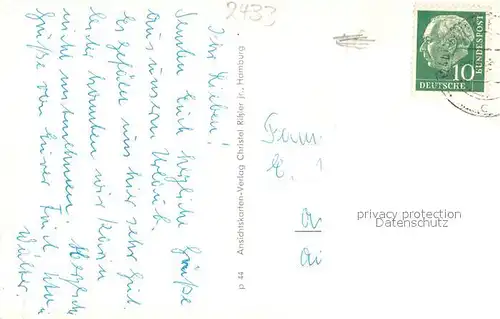 2433
Ihr Lieben!
Senden Euch herzliche Grüße
aus unserem Urlaub.
Es gefällt uns hier sehr gut.
Leider konnten wir
nicht mitnehmen. Herzliche
Grüße von Eurer
Walter.
p 44 Ansichtskarten-Verlag Christel Rißler jr., Hamburg
DEUTSCHE BUNDESPOST
10
Fam.
E.
privacy protection
Datenschutz